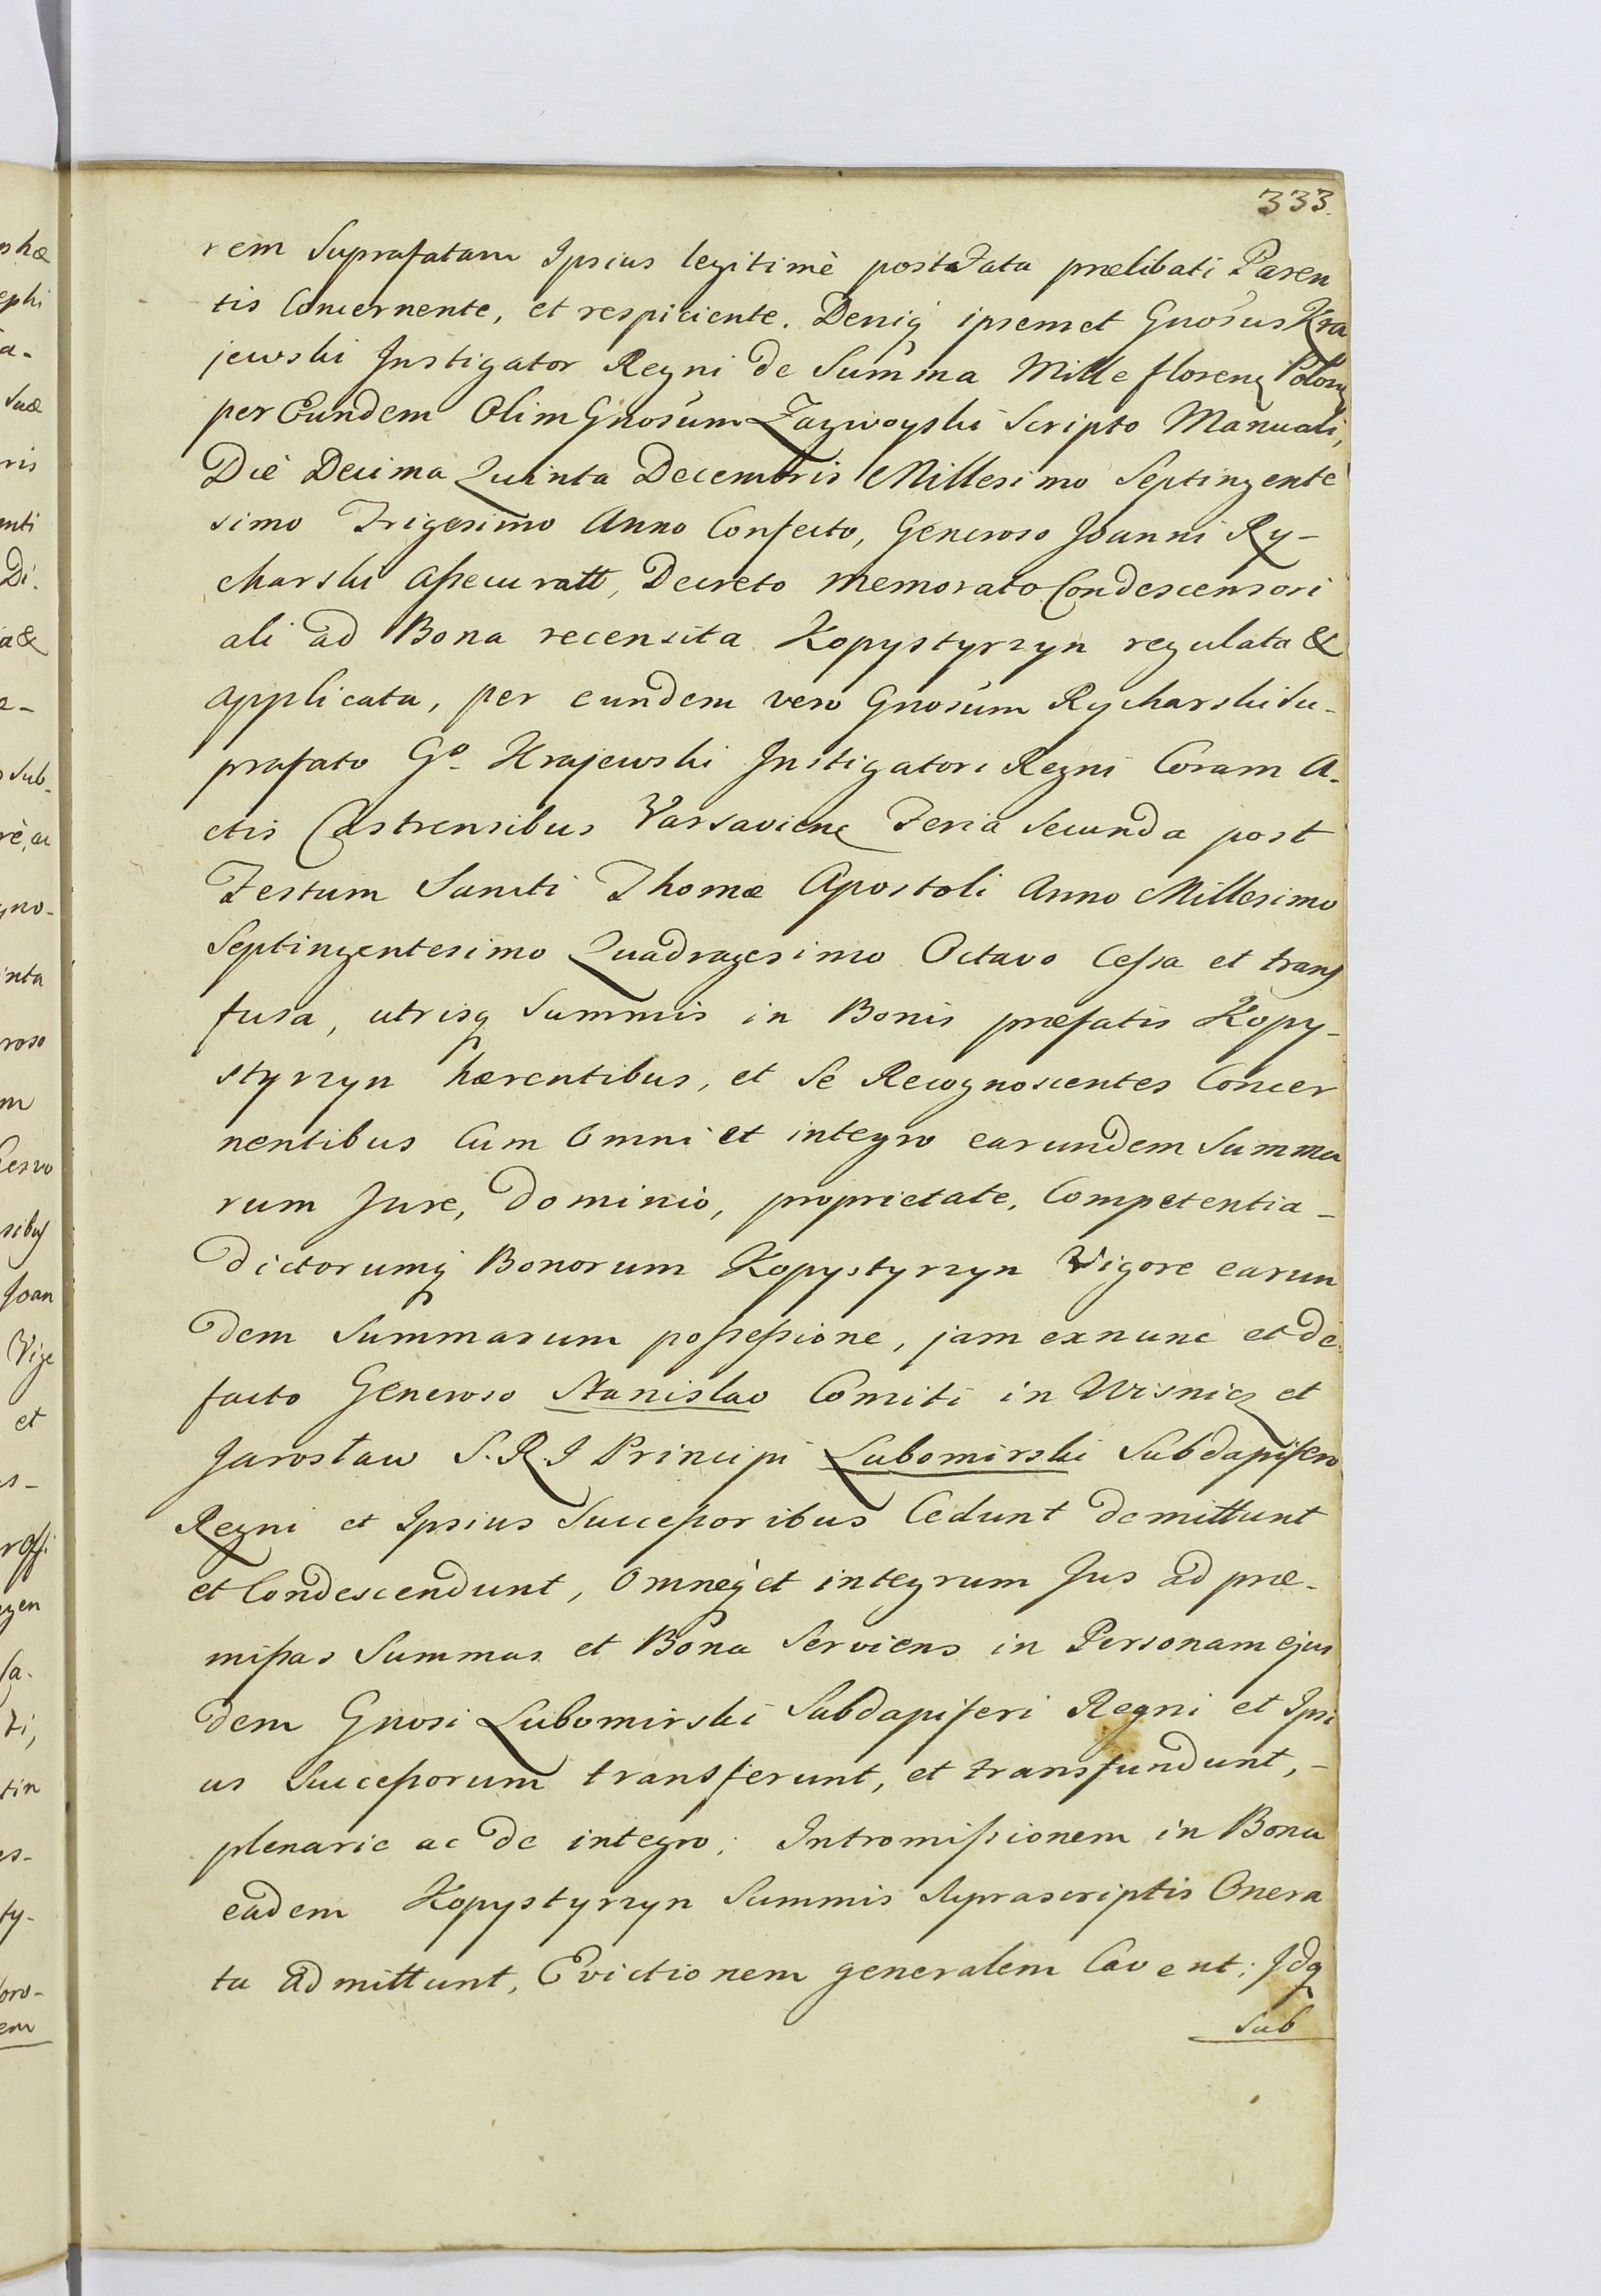 333.
rem Suprafatam Ipsius legitimè post Fata prælibati Paren
tis Concernente, et respiciente. Deniq ipsemet Gnosus Kra
jewski Instigator Regni de Summa Mille floren Polon
per Eundem Olim Gnosum Zazwoyski Scripto Manuali,
Diè Decima Quinta Decembris Millesimo Septingente
simo Trigesimo Anno Confecto, Generoso Joanni Ry-
charski Aßecuratt, Decreto memorato Condescensori
ali ad Bona recensita Kopystyrzyn regulata &
applicata, per eundem vero Gnosum Rycharski Su-
prafato Go Krajewski Instigatori Regni Coram A-
ctis Castrensibus Varsavien Feria Secunda post
Festum Sancti Thomæ Apostoli Anno Millesimo
Septingentesimo Quadragesimo Octavo Ceßa et trans
fusa, utrisq Summis in Bonis præfatis Kopy-
styrzyn hærentibus, et Se Recognoscentes Concer
nentibus Cum Omni et integro earundem Summa
rum Jure, Dominio, proprietate, Competentia-
Dictorumq Bonorum Kopystyrzyn Vigore earun
dem Summarum poßeßione, jam exnunc et de
facto Generoso Stanislao Comiti in Wisnicz et
Jarosław S. R. I Principi Lubomirski Subdapifero
Regni et Ipsius Succeßoribus Cedunt demittunt
et Condescendunt, Omneq et integrum Jus ad præ-
mißas Summas et Bona Serviens in Personam ejus
dem Gnosi Lubomirski Subdapiferi Regni et Ipsi
us Succeßorum transferunt, et transfundunt,-
plenarie ac de integro; Intromißionem in Bona
eadem Kopystyrzyn Summis Suprascriptis Onera
ta admittunt, Evictionem generalem Cavent; Idq
Sub